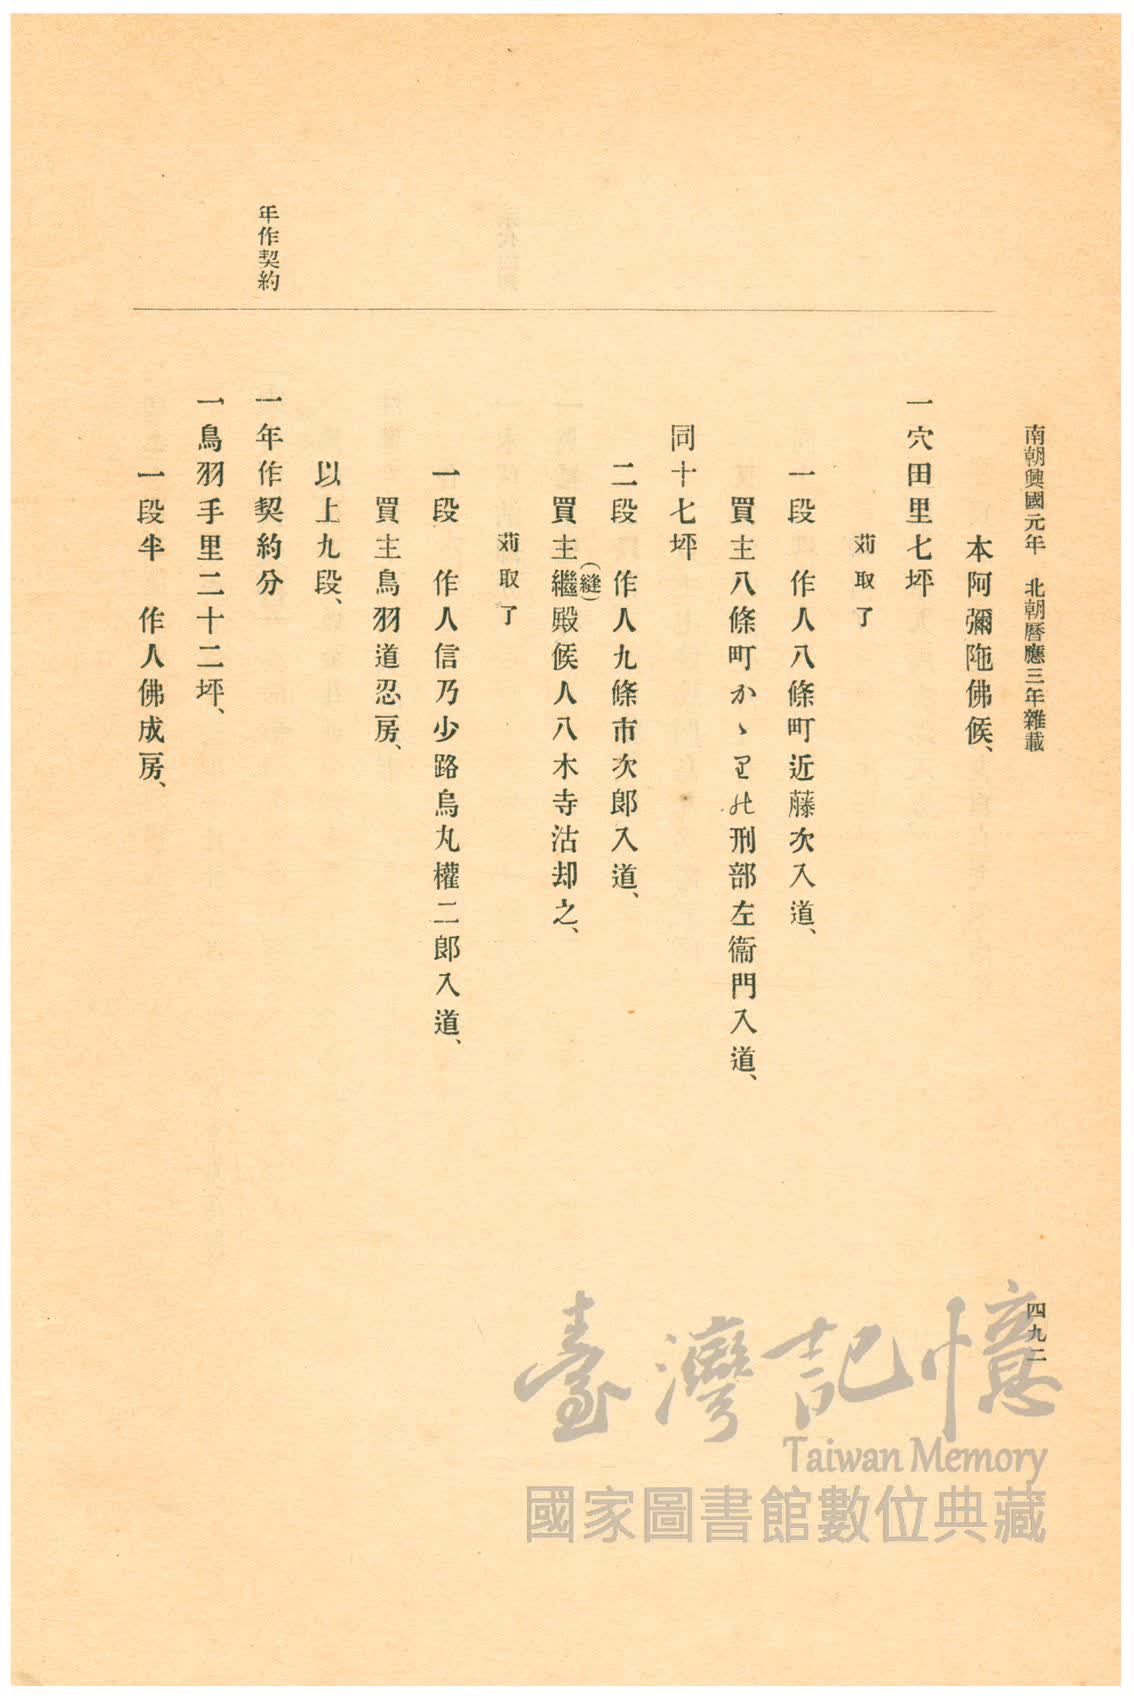 南朝興國元年　北朝曆應三年雜載
四九二
本阿彌陁佛候、
一穴田里七坪
苅取了
一段　作人八條町近藤次入道、
買主八條町かゝ
刑部左衞門入道、
同十七坪
二段　作人九條市次郎入道、
(縫)
買主繼殿候人八木寺沽却之、
苅取了
一段　作人信乃少路烏丸權二郎入道、
買主鳥羽道忍房、
以上九段、
年作契約
一年作契約分
一鳥羽手里二十二坪、
一段半　作人佛成房、
臺灣記憶
Taiwan Memory
國家圖書館數位典藏